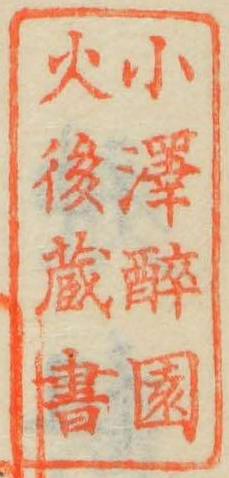 小澤醉園
火後蔵書